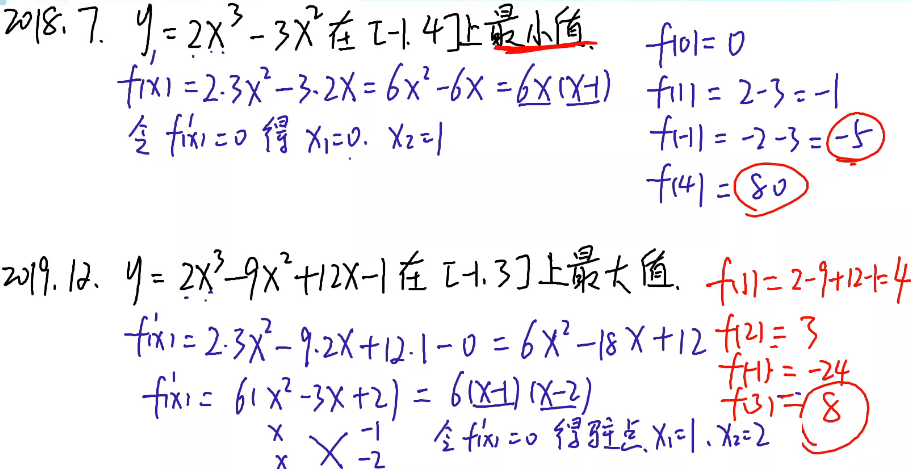 2018.7. y=2x³-3x²在[-1.4]上最小值.
f'(x)=2·3x²-3·2x=6x²-6x=6x(x-1)
令f'(x)=0得x₁=0. x₂=1
f(0)=0
f(1)=2-3=-1
f(-1)=-2-3=-5
f(4)=80
2019.12. y=2x³-9x²+12x-1在[-1.3]上最大值.
f'(x)=2·3x²-9·2x+12·1-0=6x²-18x+12
f'(x)=6(x²-3x+2)=6(x-1)(x-2)
x -1
x -2
令f'(x)=0得驻点x₁=1.x₂=2
f(1)=2-9+12-1=4
f(2)=3
f(-1)=-24
f(3)=8